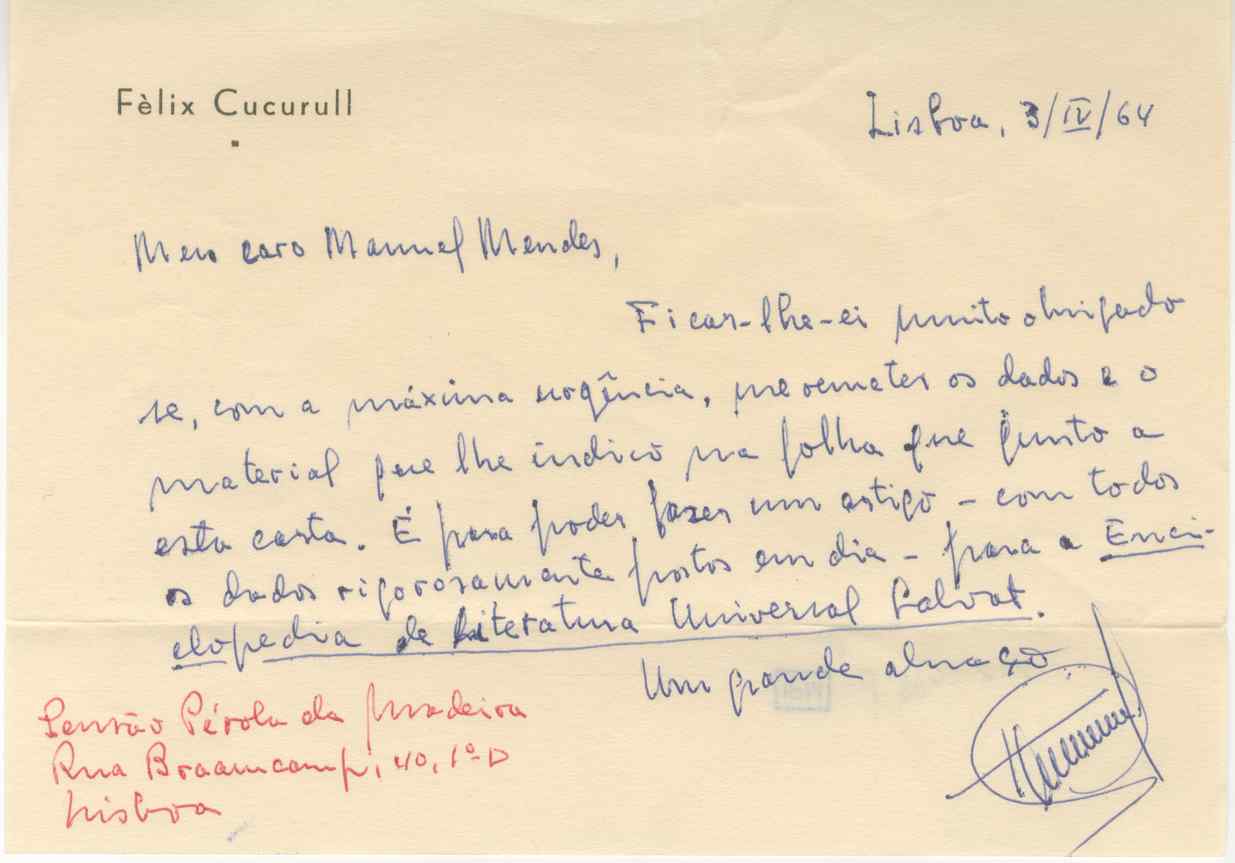 Fèlix Cucurull
Lisboa, 3/IV/64
Meu caro Manuel Mendes,
Ficar-lhe-ei muito obrigado
se, com a máxima urgência, me remeter os dados e o
material que lhe indico na folha que junto a
esta carta. É para poder fazer um artigo - com todos
os dados rigorosamente postos em dia - para a Enci-
clopedia de Literatura Universal Salvat.
Um grande abraço
Pensão Pérola da Madeira
Rua Braamcamp, 40, 1º D
Lisboa